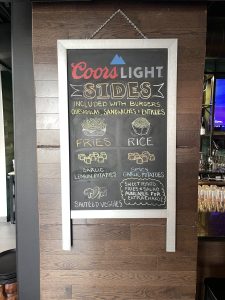 Coors LIGHT
SIDES
INCLUDED WITH BURGERS,
SANDWICHES & ENTREES
FRIES
RICE
GARLIC
LEMON POTATOES
SPICY
GARLIC POTATOES
SAUTEED VEGGIES
SWEET POTATO
FRIES & SALAD
AVAILABLE FOR
EXTRA CHARGE